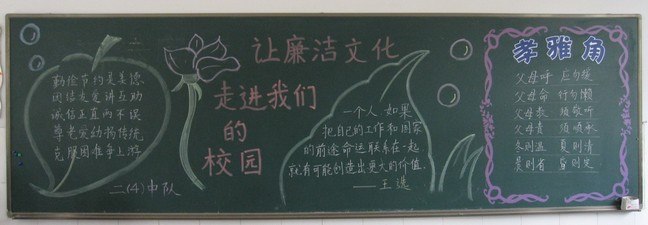 勤俭节约是美德
团结友爱讲互助
诚信正直两不误
尊老爱幼扬传统
克服困难争上游
二(4)中队
让廉洁文化
走进我们
的
校园
一个人,如果
把自己的工作和国家
的前途命运联系在一起,
就有可能创造出更大的价值.
——王选
孝雅角
父母呼 应勿缓
父母命 行勿懒
父母教 须敬听
父母责 须顺承
冬则温 夏则凊
晨则省 昏则定